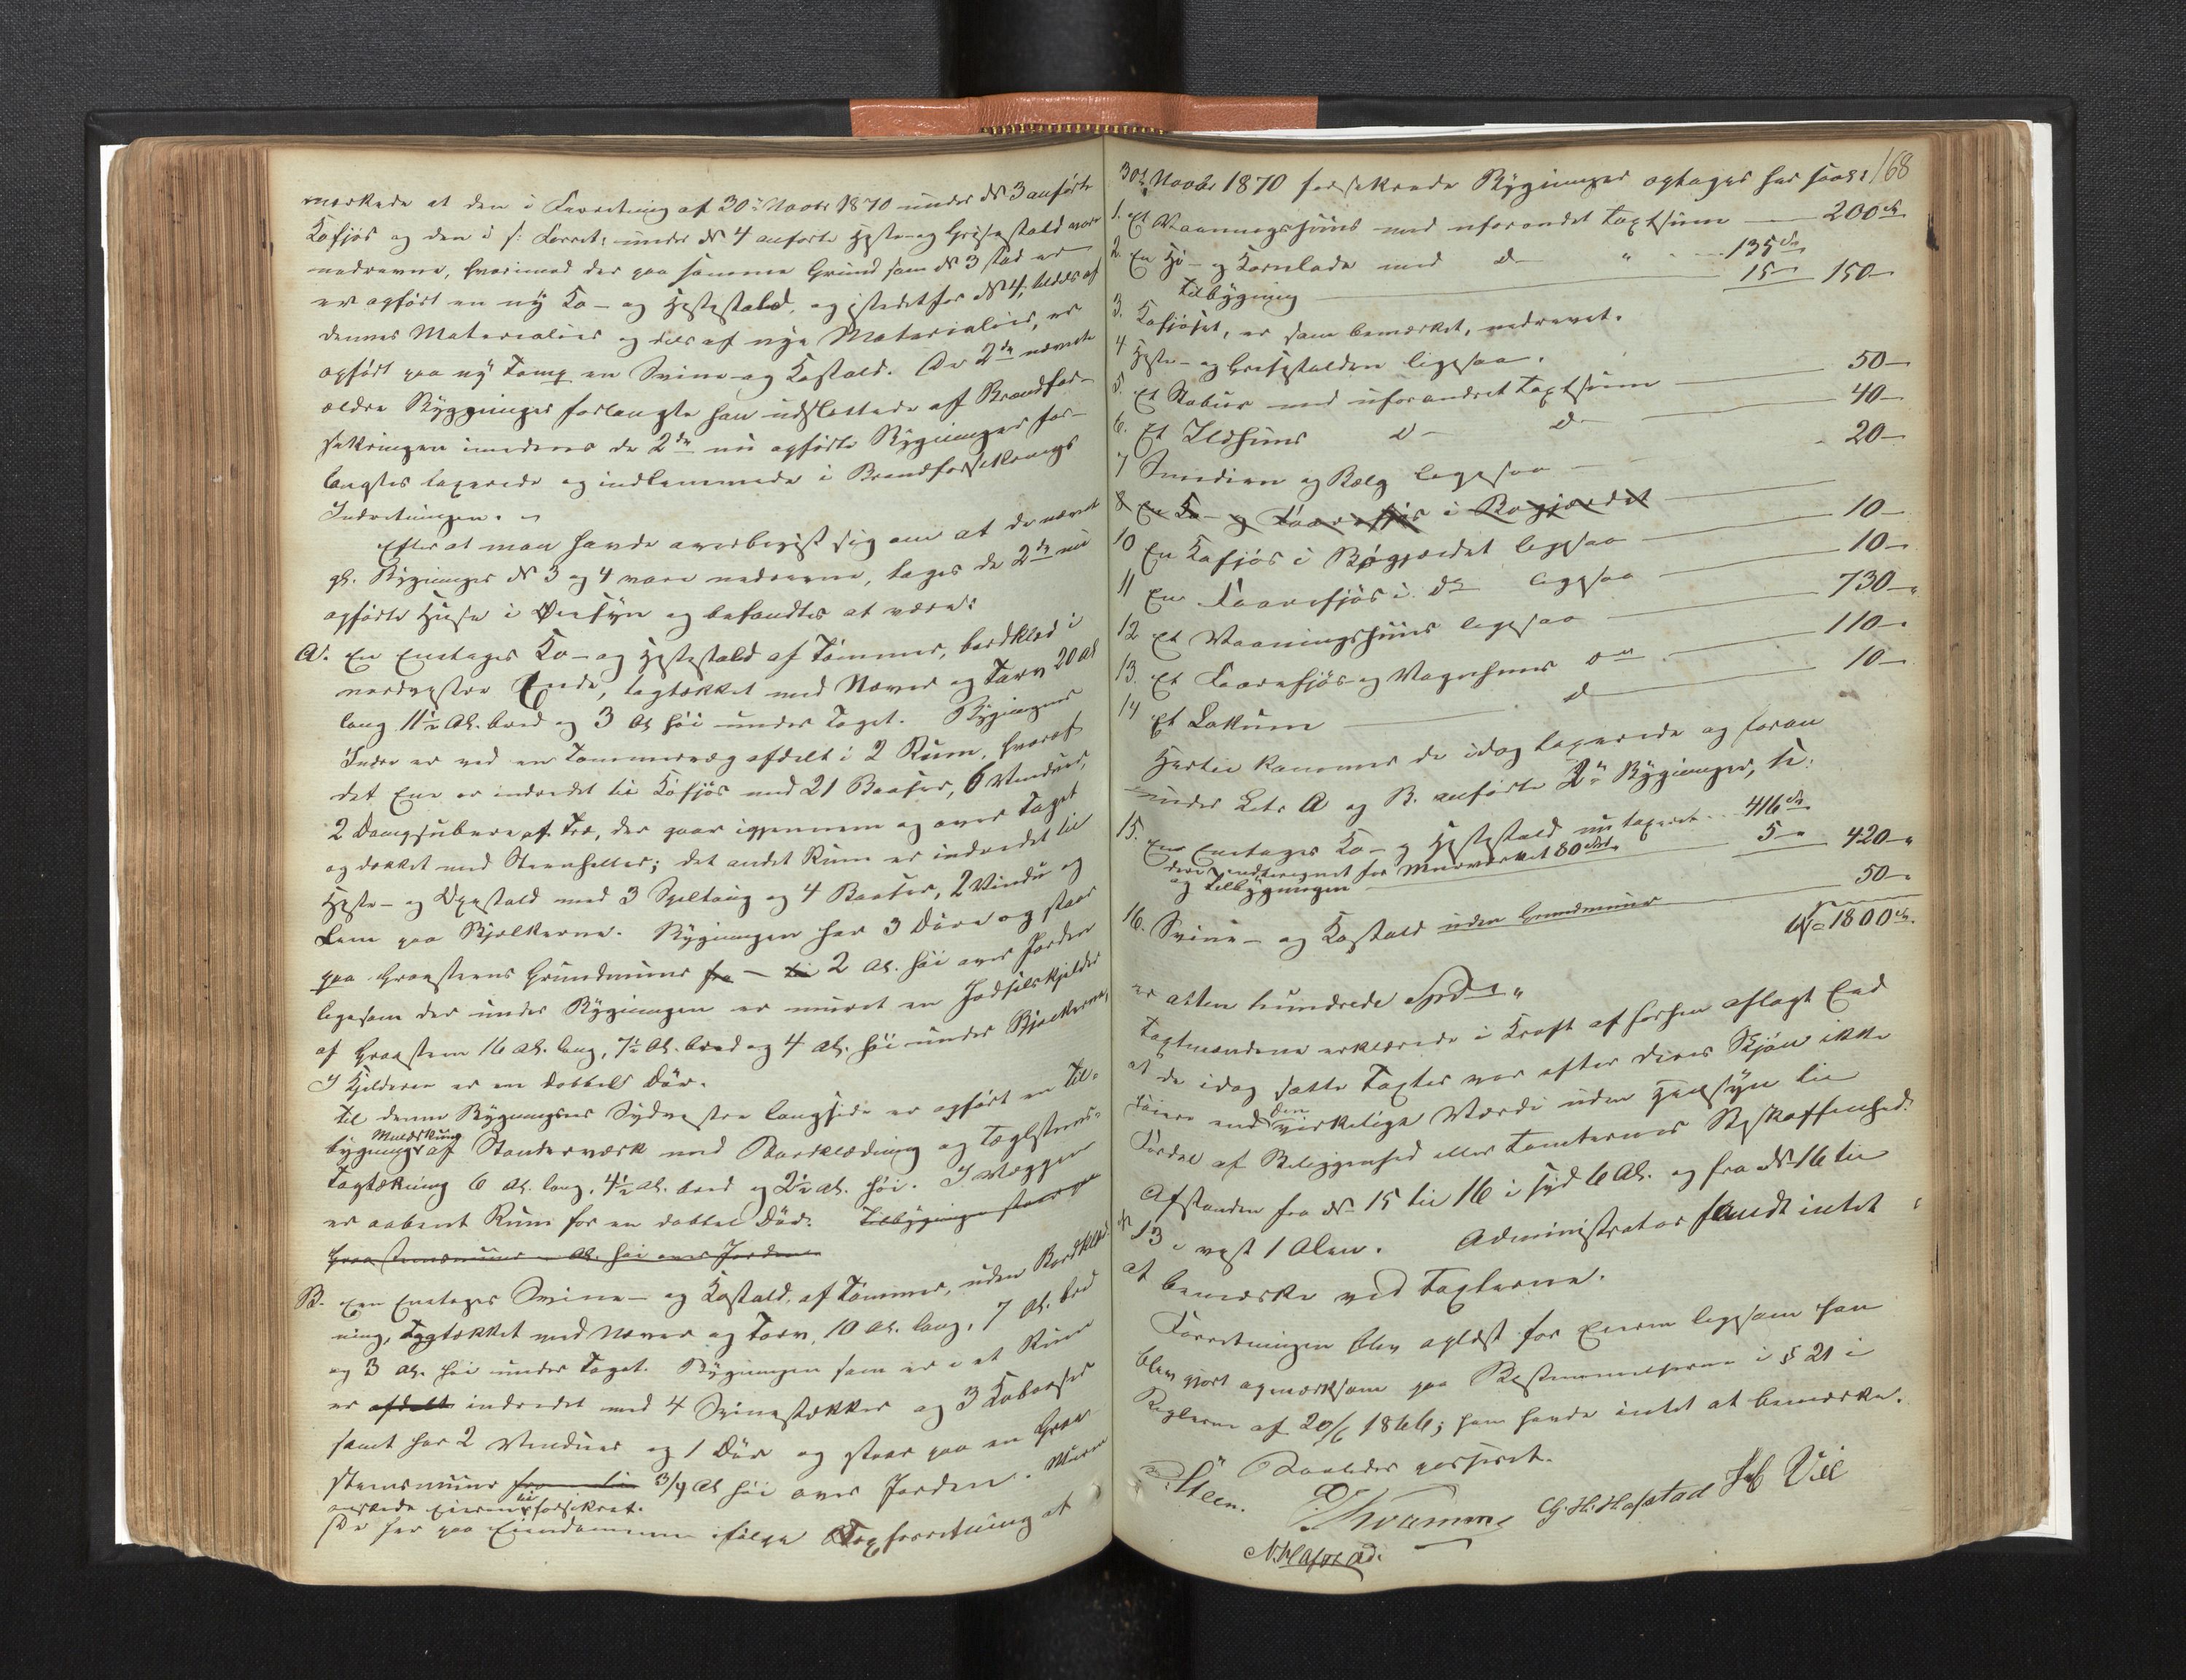 mærkede at den i Forretning af 30te Novbr 1870 under № 3 anførte
Kofjøs og den i s: Forret: under № 4 anførte Heste- og Grisestald vare
nedrevne, hvorimod der paa samme Grund som № 3 stod er
er opført en ny Ko- og Hestestald, og istedetfor № 4, tildels af
dennes Materialier og dels af nye Materialier, er
opført paa ny Tomt en Svine- og Kostald. De 2de nævnte
ældre Bygninger forlangte han udslettede af Brandfor-
sikringen imedens de 2de nu opførte Bygninger for-
langtes taxerede og indlemmede i Brandforsikrings
Indretningen.
Efterat man havde overbevist sig om at de nævnte
gl. Bygninger № 3 og 4 vare nedrevne, toges de 2de nu
opførte Huse i Øiesyn og befandtes at være:
A. En Enetages Ko- og Hestestald af Tømmer, bordklæd i
nordvestre Ende, tagtækket med Næver og Tørv 20 Al
lang 11½ Al. bred og 3 Al høi under Taget. Bygningens
Indre er ved en Tømmervæg afdelt i 2 Rum, hvoraf
det Ene er indredet til Kofjøs med 21 Baaser, 6 Vinduer,
2 Dampruber af Træ, der gaar igjennem og over Taget
og dækket med Steenheller; det andet Rum er indredet til
Heste- og Oxestald med 3 Spiltoug og 4 Baaser, 2 Vindu og
Lem paa Bjelkerne. Bygningen har 3 Døre og staar
paa Graasteens Grundmuur fra - til 2 Al. høi over Jorden
ligesom der under Bygningen er muret en Jødselskjelder
af Graasteen 16 Al. lang, 7½ Al. bred og 4 Al. høi under Bjelkerne,
I Kjelderen er en dobbelt Dør.
Til denne Bygnings Sydvestre Langside er opført en Til-
bygning af Standerværk med Bordklædning og Tæglsteens-
Tagtækning 6 Al. lang, 4½ Al. bred og 2½ Al. høi. I Væggen
er aabent Rum for en dobbel Dør. Tilbygningen staar paa
Graasteensmuur Al. høi over Jorden
B. En Enetages Svine- og Kostald, af Tømmer, uden Bordklæd-
ning, Tagtækket med Næver og Tørv, 10 Al. lang, 7 Al. bred
og 3 Al. høi under Taget. Bygningen som er i et Rum
er afdelt indredet med 4 Svinestækker og 3 Kobaaser
samt har 2 Vinduer og 1 Dør og staar paa en Graa-
steensmuur fra - til 3/4 Al høi over Jorden. Muren
ønskede Eieren ei forsikret.
De her paa Eiendommen ifølge Taxforretning af
168
30te Novbr 1870 forsikrede Bygninger optages her saas:
1. Et Vaaningshuus med uforandret Taxtsum 200 Sp
2. En Hø- og Kornlade med do " 135 Sp
Tilbygning 15 - 150 -
3. Kofjøset, er som bemærket, nedrevet.
4 Heste- og Grisestalden ligesaa.
5. Et Stabur med uforandret Taxtsum 50 -
6. Et Ildhuus do do 40 -
7 Smedien og Bælg ligesaa 20 -
8 En Ko- og Faarefjøs i Bøgjærdet
10 En Kofjøs i Bøgjærdet ligesaa 10 -
11 En Faarefjøs i do ligesaa 10 -
12 Et Vaaningshuus ligesaa 730 -
13. Et Faarefjøs og Vognhuus do 110 -
14 Et Lokum do 10 -
Hertil kommer de idag taxerede og foran
under Litr A og B. anførte 2de Bygninger, se:
15. En Enetages Ko- og Hestestald nu taxeret 416 Sp
deri indberegnet for Muurværket 80 Spd.
og Tilbygningen 5 - 420 -
16. Svine- og Kostald uden Grundmuur 50 -
1800 Sp.
er atten hundrede Spd.
Taxtmændene erklærede i Kraft af forhen aflagt Eed
at de idag satte Taxter var efter deres Skjøn ikke
høiere end den virkelige Værdi uden Hensyn til
Fordel af Beliggenhed eller Tomternes Beskaffenhed.
Afstanden fra № 15 til 16 i syd 6 Al. og fra № 16 til
№ 13 i vest 1 Alen. Administrator fandt intet
at bemærke ved Taxterne.
Forretningen blev oplæst for Eieren ligesom han
blev gjort opmærksom paa Bestemmelserne i § 21 i
Reglerne af 20/6 1866; han havde intet at bemærke.
Saaledes passeret.
Steen. Kvamme G. H. Hafstad Vil
N. Hafstad.